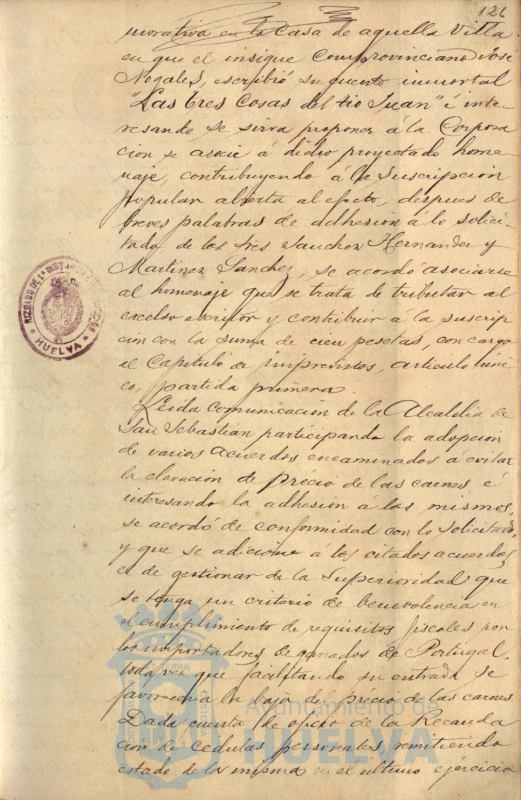 126
morativa en la Casa de aquella Villa
en que el insigne comprovinciano José
Nogales, escribió su cuento inmortal
"Las tres Cosas del tio Juan" é inte-
resando se sirva proponer á la Corpora
cion se asocie á dicho proyectado home-
naje, contribuyendo á la suscripcion
popular abierta al efecto, despues de
breves palabras de adhesion á lo solici-
tado, de los Sres Sanchez Hernandez y
Martinez Sanchez, se acordó asociarse
al homenaje que se trata de tributar al
excelso escritor y contribuir á la suscrip
cion con la suma de cien pesetas, con cargo
al Capitulo de imprevistos, articulo úni-
co, partida primera.
Leida comunicacion de la Alcaldia de
San Sebastian participando la adopcion
de varios acuerdos encaminados á evitar
la elevacion de precio de las carnes é
interesando la adhesion á los mismos,
se acordó de conformidad con lo solicitado,
y que se adicione á los citados acuerdos,
el de gestionar de la Superioridad que
se tenga un criterio de benevolencia en
el cumplimiento de requisitos fiscales por
los importadores de ganados de Portugal,
toda vez que facilitando su entrada se
favoreceria la baja del precio de las carnes.
Dada cuenta de oficio de la Recauda
cion de Cedulas personales, remitiendo
estado de la misma en el último ejercicio
HUELVA
Ayuntamiento de
HUELVA